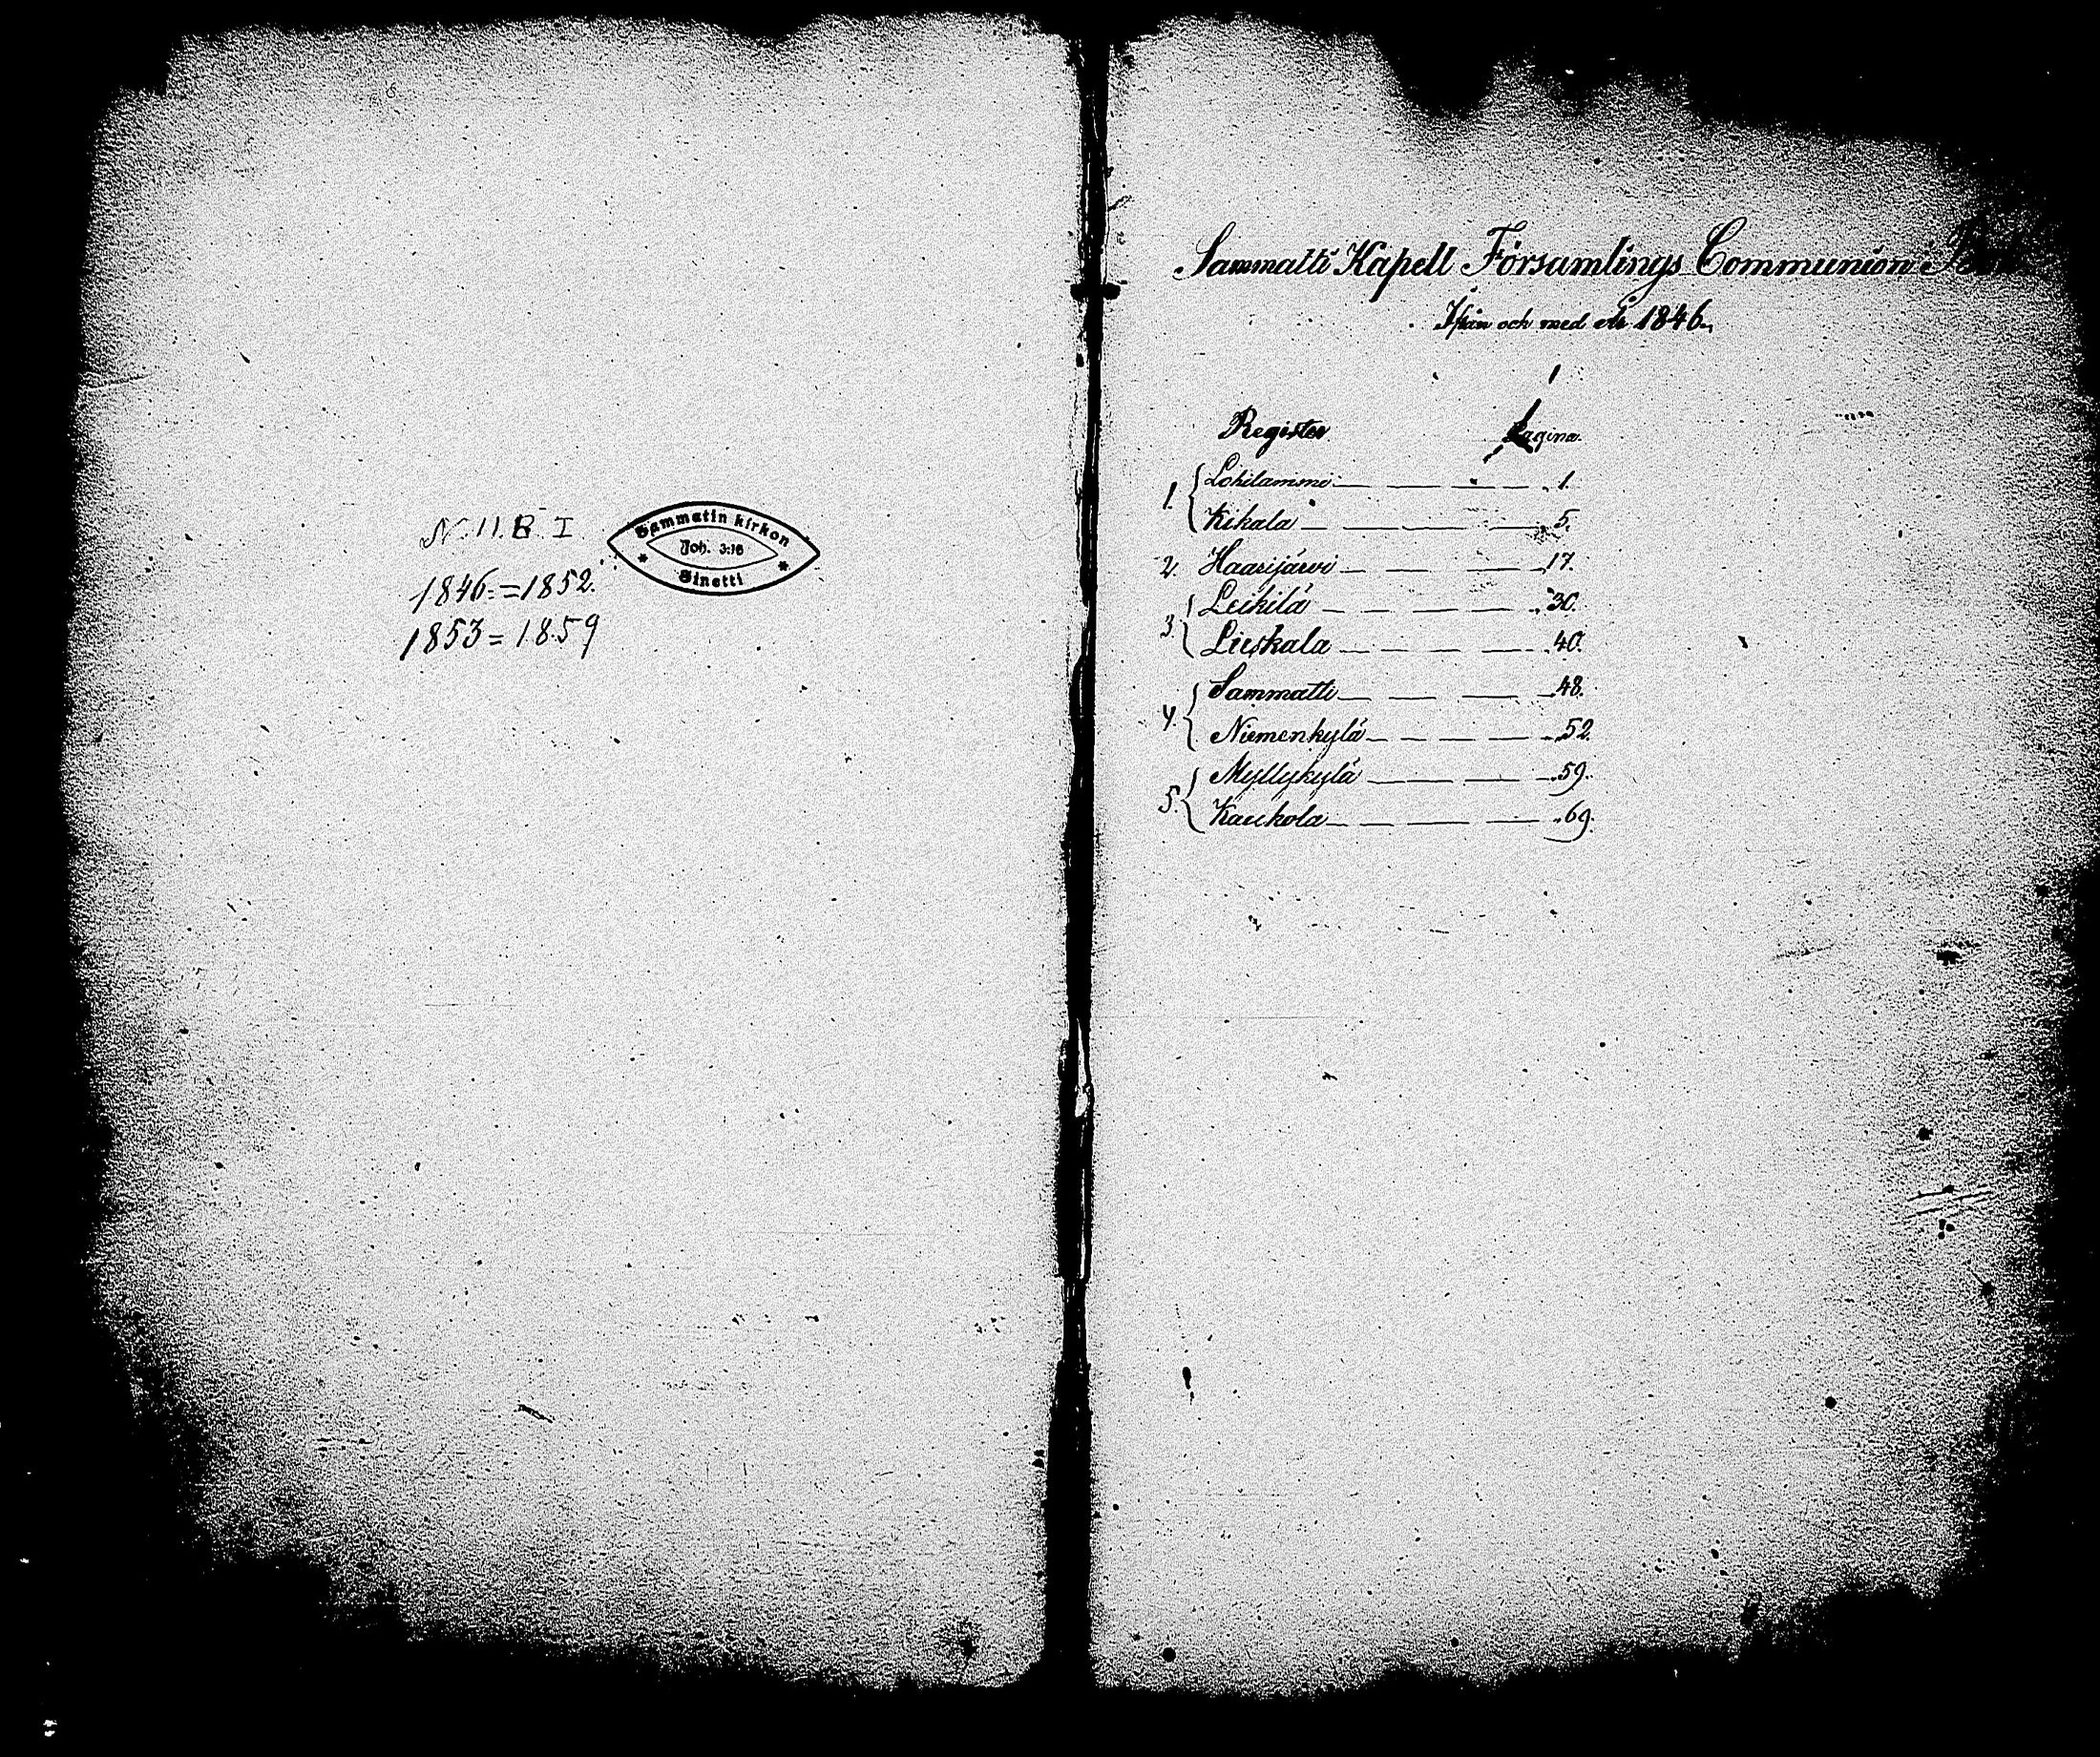 N:o 11. B. I.
1846.=1852.
1853=1859
Sammatin kirkon
Joh. 3:16
Sinetti
Sammatti Kapell Församlings Communion
Ifrån och med år 1846.
Register Pagina.
1. Lohilammi 1.
Kikala 5.
2. Haarijärvi 17.
3. Leikilä 30.
Lieskala 40.
4. Sammatti 48.
Niemenkylä 52.
5. Myllykylä 59.
Kaukola 69.